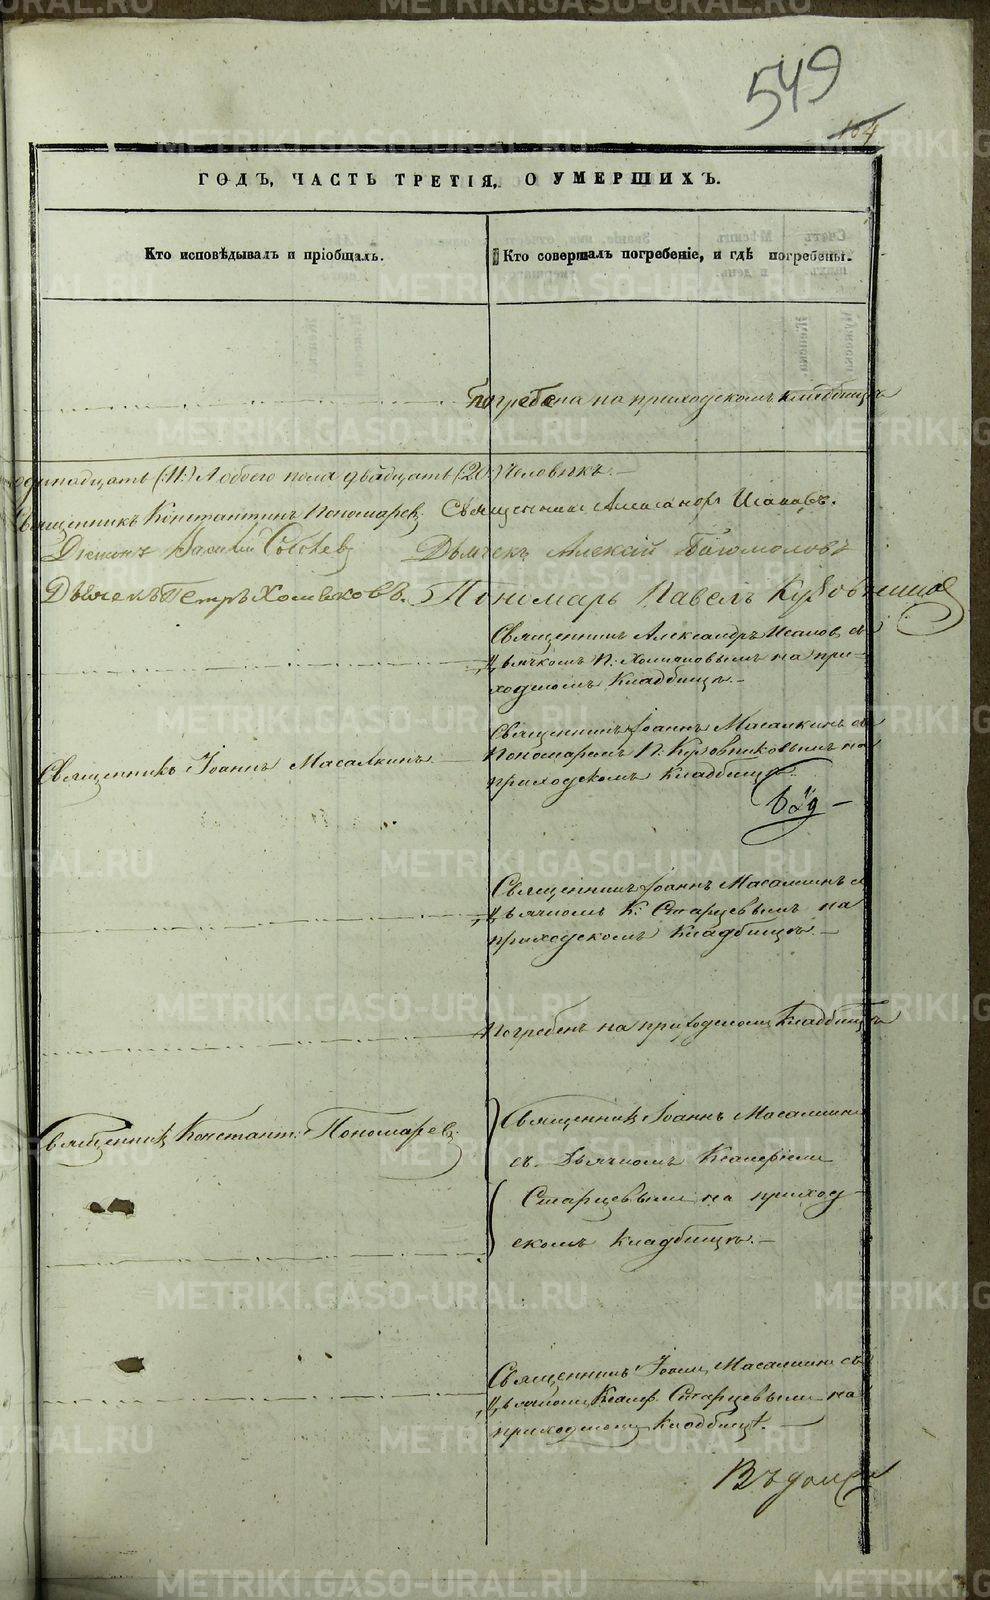 549
104
ГОДЪ, ЧАСТЬ ТРЕТІЯ, О УМЕРШИХЪ.
Кто исповѣдывалъ и пріобщалъ.
Кто совершалъ погребеніе, и гдѣ погребены.
Погребена на приходскомъ кладбищѣ
одинадцать (:11:) А обоего пола двадцать (20:) Человѣкъ.—
Священникъ Константинъ Пономаревъ. Священникъ Александръ Исаковъ.
Діаконъ Василій Дьячекъ Алексѣй Богомоловъ
Дьячекъ Петръ Хомяковъ. Пономарь Павелъ Кузовниковъ
Священникъ Александръ Исаковъ съ
дьячкомъ П. Хомяковымъ на при-
ходскомъ Кладбищѣ.—
Священникъ Іоаннъ Масалкинъ
Священникъ Іоаннъ Масалкинъ съ
Пономаремъ П. Кузовниковымъ на
приходскомъ Кладбищѣ.
Священникъ Іоаннъ Масалкинъ съ
дьячкомъ К: Старцевымъ на
приходскомъ Кладбищѣ.—
Погребенъ на приходскомъ Кладбищѣ
Священникъ Констант: Пономаревъ.
Священникъ Іоаннъ Масалкинъ
съ Дьячкомъ
Старцевымъ на приход-
скомъ Кладбищѣ.—
Священникъ Іоаннъ Масалкинъ съ
дьячкомъ Старцевымъ на
приходскомъ Кладбищѣ.—
METRIKI.GASO-URAL.RU